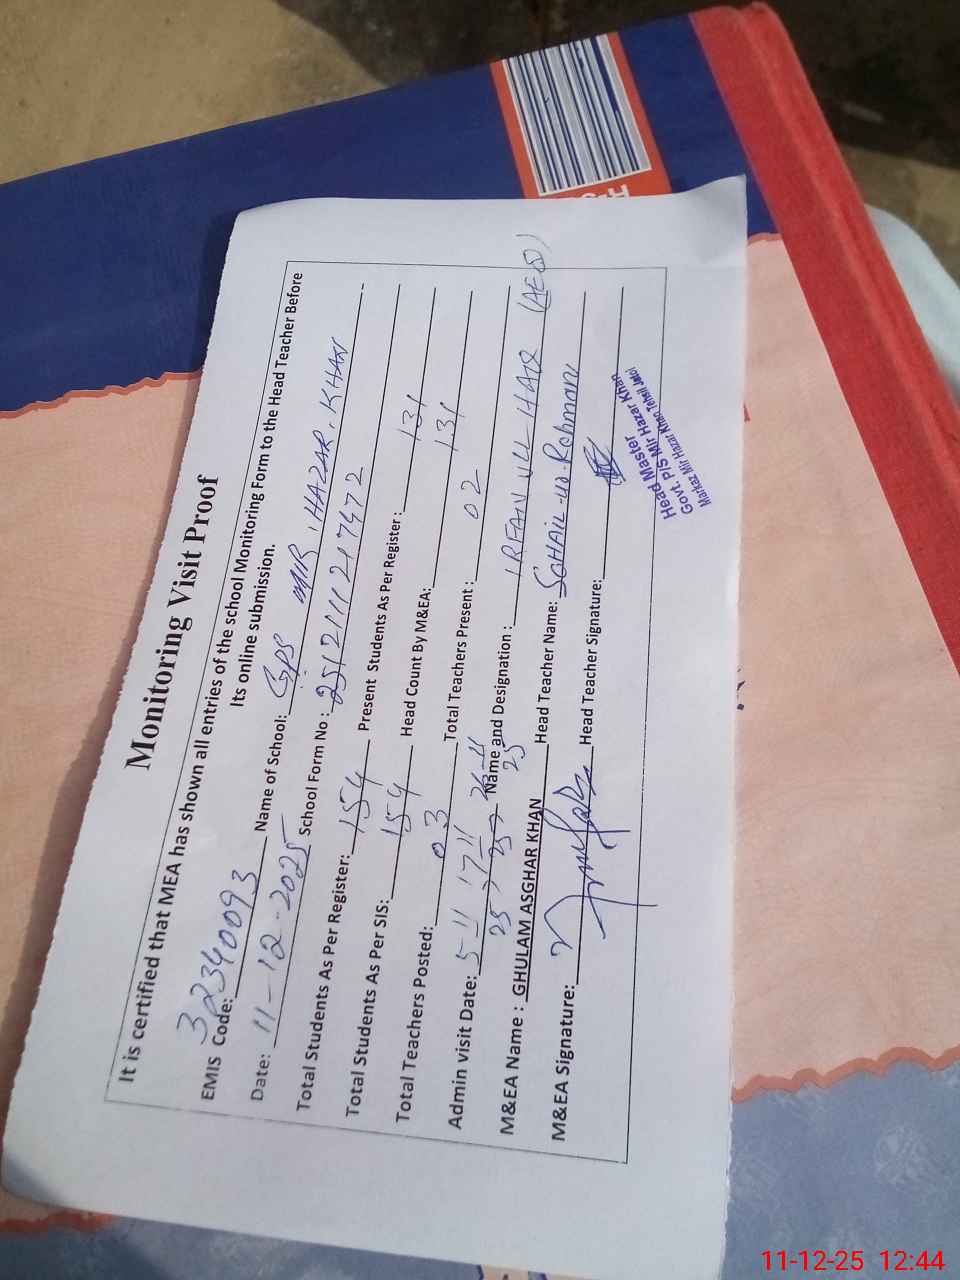 Monitoring Visit Proof
It is certified that MEA has shown all entries of the school Monitoring Form to the Head Teacher Before
Its online submission.
EMIS Code: 32340093 Name of School: GPS MIR HAZAR KHAN
Date: 11-12-2025 School Form No : 251211121747 2
Total Students As Per Register: 154 Present Students As Per Register : 131
Total Students As Per SIS: 154 Head Count By M&EA: 131
Total Teachers Posted: 03 Total Teachers Present : 02
Admin visit Date: 5-11-25, 17-11-25, 26-11-25 Name and Designation : IRFAN ULL HAQ (AEO)
M&EA Name : GHULAM ASGHAR KHAN Head Teacher Name: SOHAIL-UR-Rehmani
M&EA Signature: Head Teacher Signature:
Head Master
Govt. P/S Mir Hazar Khan
Markaz Mir Hazar Khan Tehsil Jatoi
11-12-25 12:44